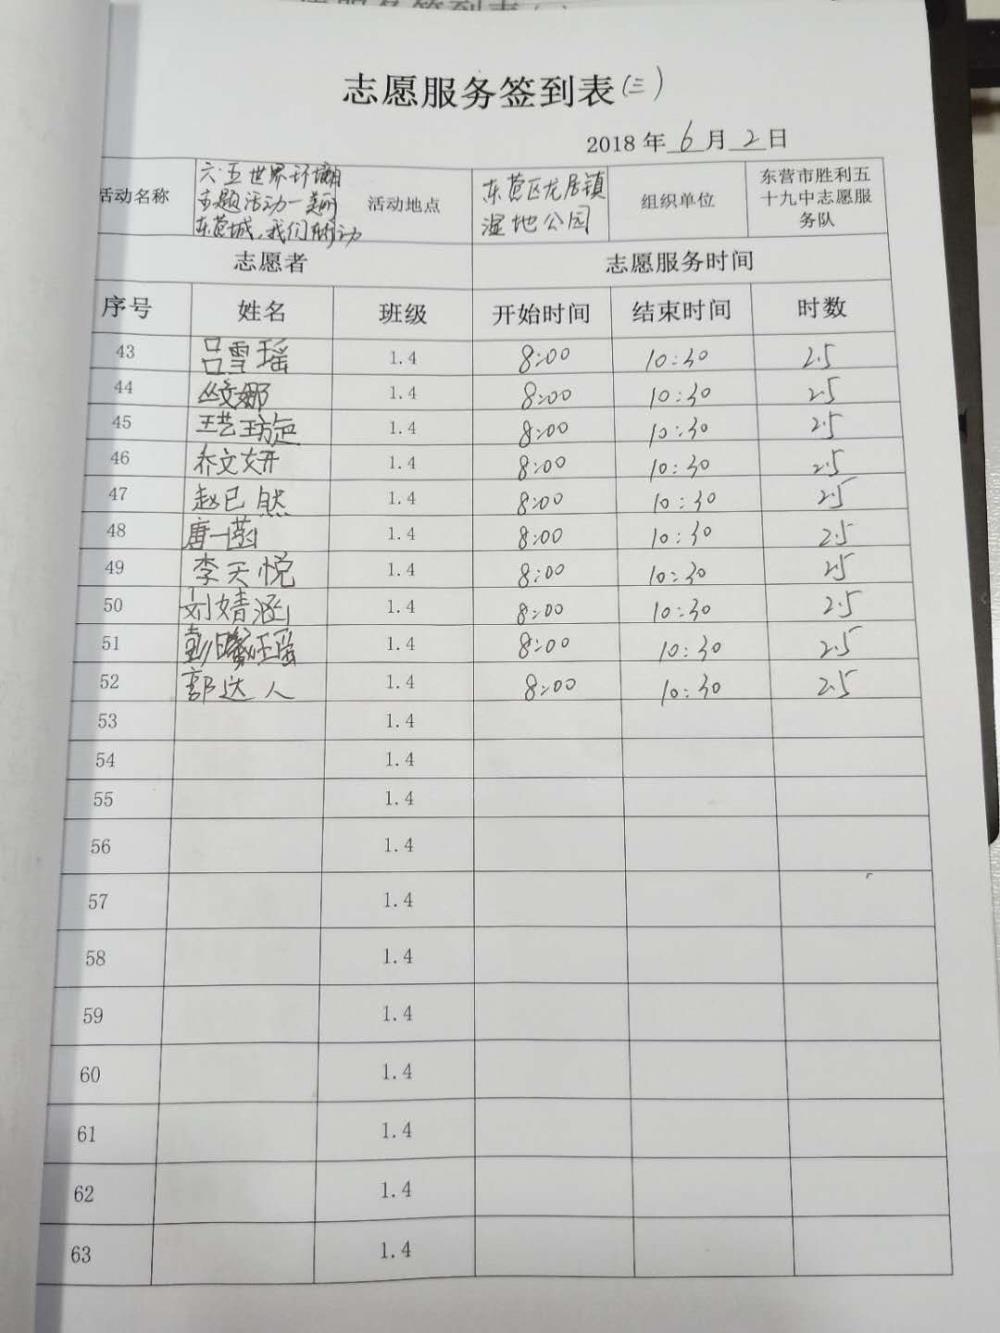 志愿服务签到表(三)
2018 年 6 月 2 日
活动名称 六·五世界环境日主题活动一美丽东营城,我们在行动 活动地点 东营区龙居镇湿地公园 组织单位 东营市胜利五十九中志愿服务队
志愿者 志愿服务时间
序号 姓名 班级 开始时间 结束时间 时数
43 吕雪瑶 1.4 8:00 10:30 2.5
44 1.4 8:00 10:30 2.5
45 王艺璇 1.4 8:00 10:30 2.5
46 乔文妍 1.4 8:00 10:30 2.5
47 赵已然 1.4 8:00 10:30 2.5
48 唐一菡 1.4 8:00 10:30 2.5
49 李天悦 1.4 8:00 10:30 2.5
50 刘婧涵 1.4 8:00 10:30 2.5
51 彭曦瑶 1.4 8:00 10:30 2.5
52 郭达人 1.4 8:00 10:30 2.5
53 1.4
54 1.4
55 1.4
56 1.4
57 1.4
58 1.4
59 1.4
60 1.4
61 1.4
62 1.4
63 1.4